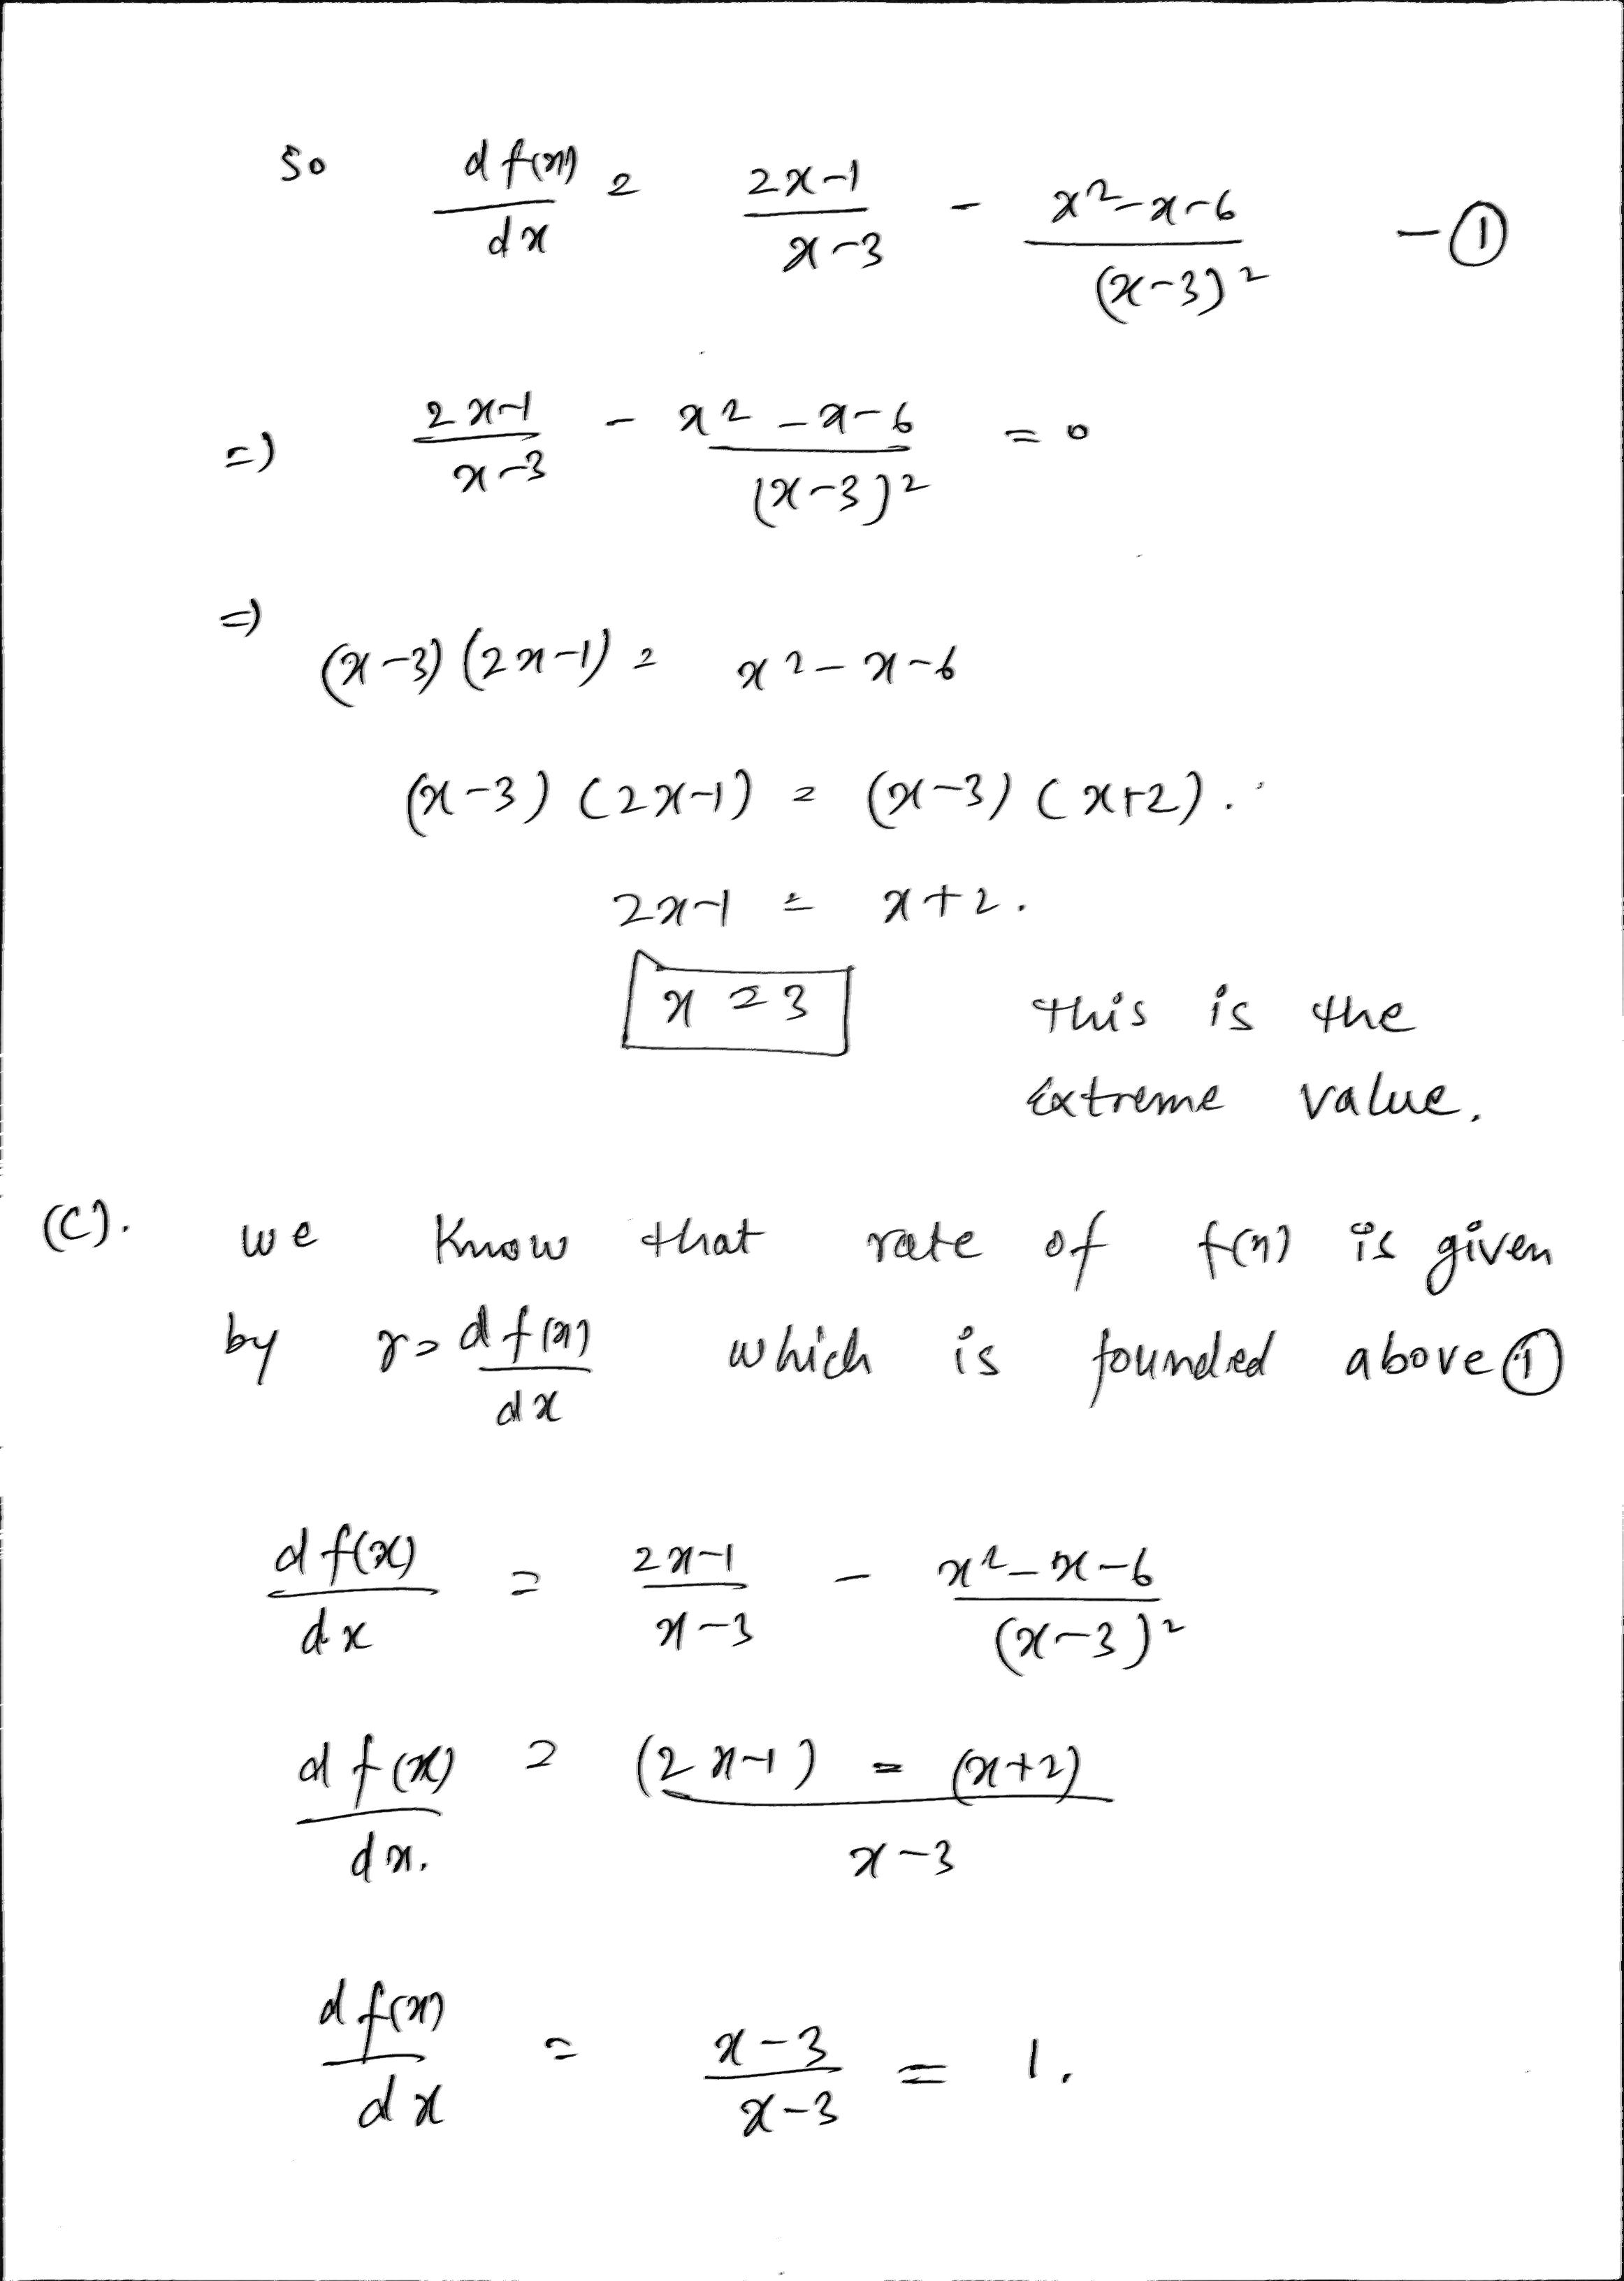 so df(x)/dx = 2x-1/x-3 - x²-x-6/(x-3)² -①
=) 2x-1/x-3 - x²-x-6/(x-3)² = 0
=) (x-3)(2x-1) = x²-x-6
(x-3)(2x-1) = (x-3)(x+2).
2x-1 = x+2.
x = 3 This is the
Extreme value.
(C). we know that rate of f(x) is given
by r = df(x)/dx which is founded above ①
df(x)/dx = 2x-1/x-3 - x²-x-6/(x-3)²
df(x)/dx. = (2x-1) = (x+2)/x-3
df(x)/dx = x-3/x-3 = 1.